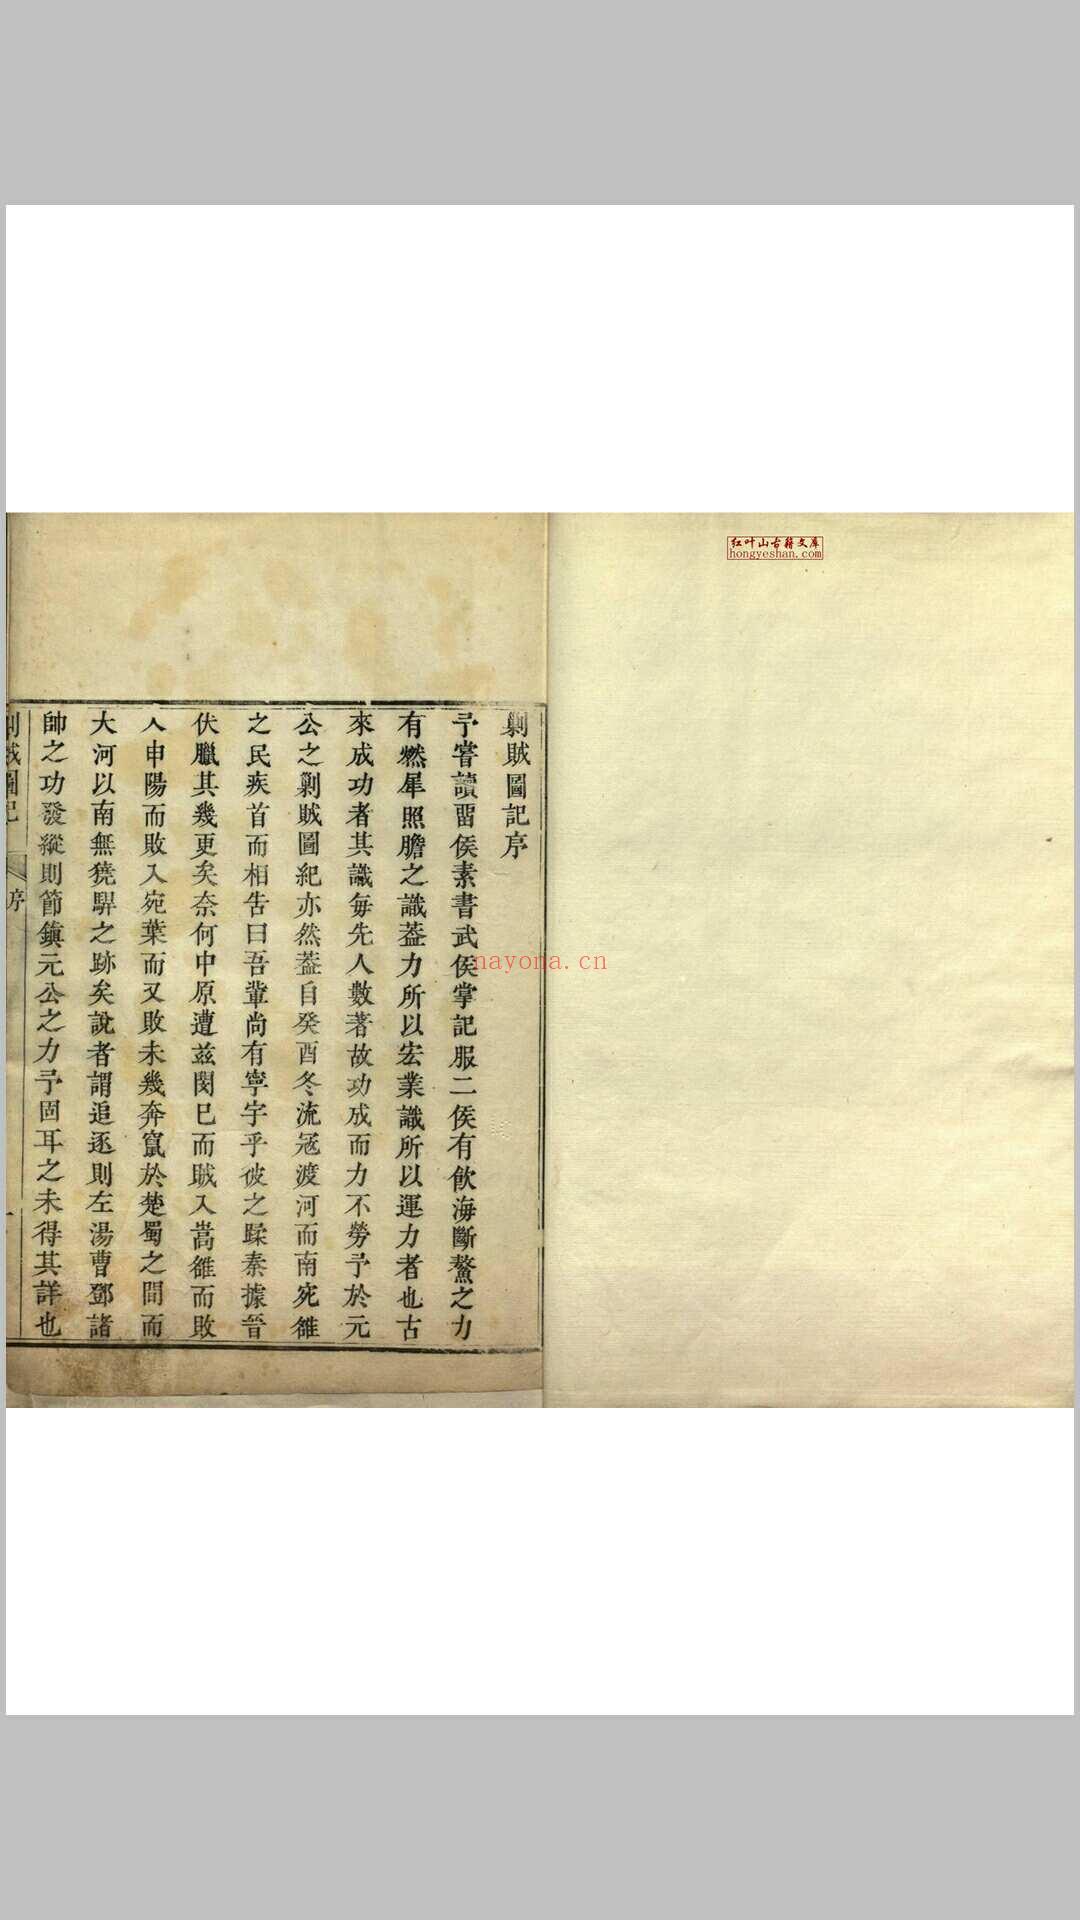 红叶山古籍文库
hongyeshan.com
nayona.cn
剿賊圖記序
予嘗讀畱侯素書武侯掌記服二侯有飮海斷鰲之力
有燃犀照膽之識葢力所以宏業識所以運力者也古
來成功者其識每先人數著故功成而力不勞予於元
公之剿賊圖紀亦然葢自癸酉冬流冦渡河而南宛雒
之民疾首而相告曰吾軰尚有寧宇乎彼之蹂秦據晉
伏臘其幾更矣奈何中原遭兹閔巳而賊入嵩雒而敗
入申陽而敗入宛葉而又敗未幾奔竄於楚蜀之間而
大河以南無獍騂之跡矣說者謂追逐則左湯曹鄧諸
帥之功發縱則節鎮元公之力予固耳之未得其詳也
剿賊圖記
序
一